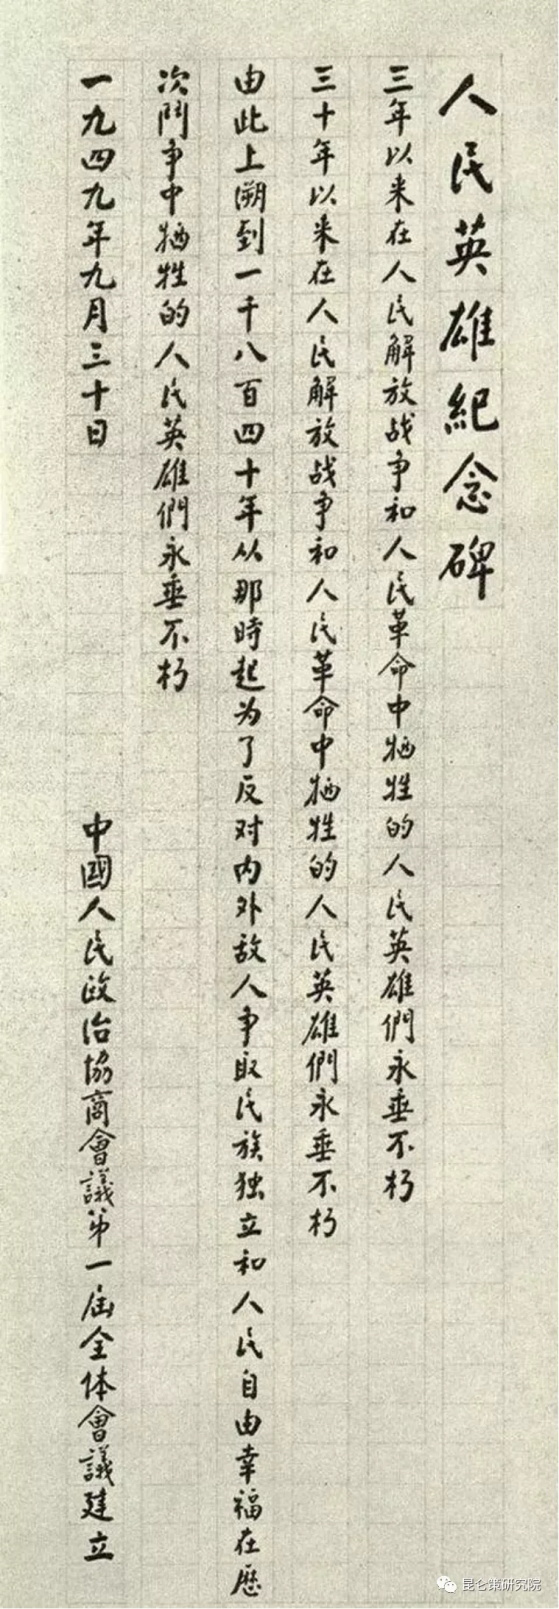 人民英雄紀念碑
三年以来在人民解放战争和人民革命中牺牲的人民英雄們永垂不朽
三十年以来在人民解放战争和人民革命中牺牲的人民英雄們永垂不朽
由此上溯到一千八百四十年从那時起为了反对内外敌人争取民族独立和人民自由幸福在歷
次鬥争中牺牲的人民英雄們永垂不朽
一九四九年九月三十日 中國人民政治協商會議第一届全体會議建立
昆仑策研究院